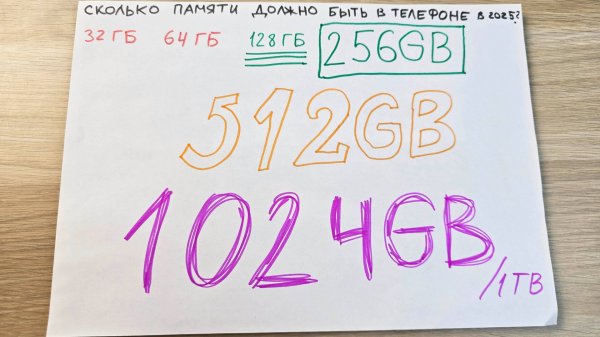 СКОЛЬКО ПАМЯТИ ДОЛЖНО БЫТЬ В ТЕЛЕФОНЕ В 2025?
32ГБ 64ГБ 128ГБ 256GB
512GB
1024GB
/1TB